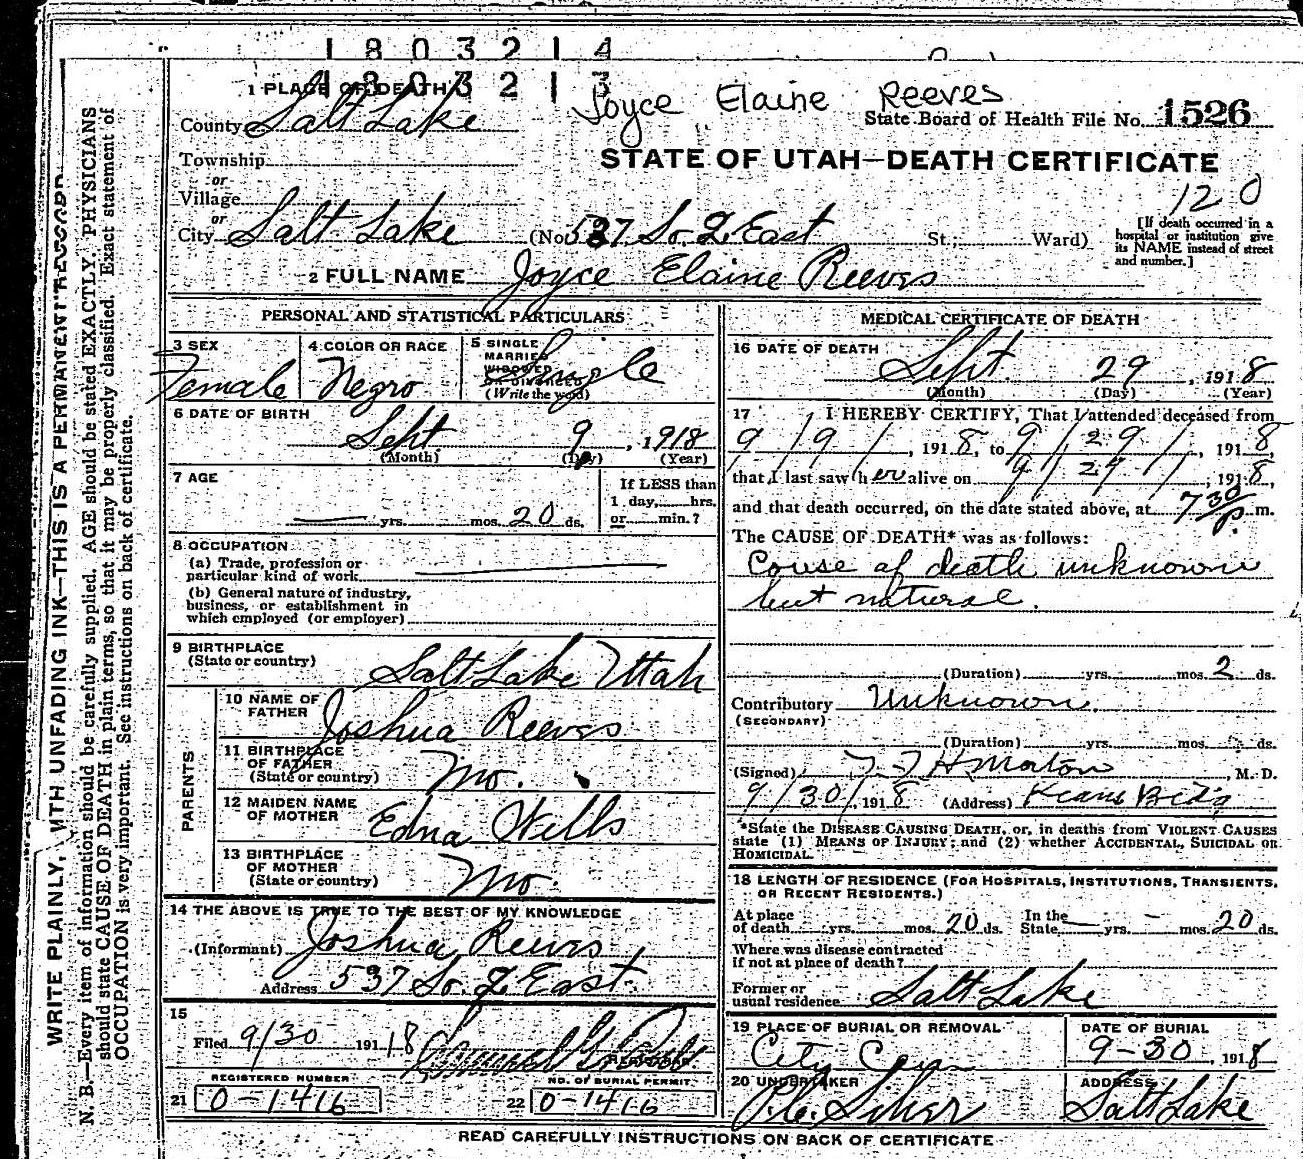 1803214
1803213
1 PLACE OF DEATH
Joyce Elaine Reeves
County Salt Lake
State Board of Health File No. 1526
Township
or
STATE OF UTAH—DEATH CERTIFICATE
Village
or
120
City Salt Lake (No. 537 So. 2 East St.; Ward)
[If death occurred in a
hospital or institution give
its NAME instead of street
and number.]
2 FULL NAME Joyce Elaine Reeves
PERSONAL AND STATISTICAL PARTICULARS
3 SEX
Female
4 COLOR OR RACE
Negro
5 SINGLE
MARRIED
WIDOWED
OR DIVORCED
(Write the word)
Single
6 DATE OF BIRTH
Sept 9, 1918
(Month) (Day) (Year)
7 AGE
— yrs. mos. 20 ds.
If LESS than
1 day, hrs.
or min.?
8 OCCUPATION
(a) Trade, profession or
particular kind of work
(b) General nature of industry,
business, or establishment in
which employed (or employer)
9 BIRTHPLACE
(State or country)
Salt Lake Utah
PARENTS
10 NAME OF
FATHER
Joshua Reeves
11 BIRTHPLACE
OF FATHER
(State or country)
Mo.
12 MAIDEN NAME
OF MOTHER
Edna Wells
13 BIRTHPLACE
OF MOTHER
(State or country)
Mo.
14 THE ABOVE IS TRUE TO THE BEST OF MY KNOWLEDGE
(Informant) Joshua Reevs
Address 537 So. 2 East
15
Filed 9/30 1918
REGISTRAR
REGISTERED NUMBER
21 0-1416
NO. OF BURIAL PERMIT
22 0-1416
MEDICAL CERTIFICATE OF DEATH
16 DATE OF DEATH
Sept. 29, 1918
(Month) (Day) (Year)
17 I HEREBY CERTIFY, That I attended deceased from
9/9/, 1918, to 9/29/, 1918,
that I last saw h er alive on 9/29/, 1918,
and that death occurred, on the date stated above, at 7 30 P. m.
The CAUSE OF DEATH* was as follows:
Couse of death unknown
but natural.
(Duration) yrs. mos. 2 ds.
Contributory Unknown.
(SECONDARY)
(Duration) yrs. mos. ds.
(Signed) M. D.
9/30/1918 (Address) Keans Bldg
*State the DISEASE CAUSING DEATH, or, in deaths from VIOLENT CAUSES
state (1) MEANS OF INJURY; and (2) whether ACCIDENTAL, SUICIDAL OR
HOMICIDAL.
18 LENGTH OF RESIDENCE (FOR HOSPITALS, INSTITUTIONS, TRANSIENTS,
OR RECENT RESIDENTS.)
At place
of death yrs. mos. 20 ds.
In the
State — yrs. — mos. 20 ds.
Where was disease contracted
if not at place of death?
Former or
usual residence Salt Lake
19 PLACE OF BURIAL OR REMOVAL
City Cem
DATE OF BURIAL
9-30, 1918
20 UNDERTAKER
ADDRESS
Salt Lake
READ CAREFULLY INSTRUCTIONS ON BACK OF CERTIFICATE
WRITE PLAINLY, WITH UNFADING INK—THIS IS A PERMANENT RECORD
N. B.—Every item of information should be carefully supplied. AGE should be stated EXACTLY. PHYSICIANS
should state CAUSE OF DEATH in plain terms, so that it may be properly classified. Exact statement of
OCCUPATION is very important. See instructions on back of certificate.